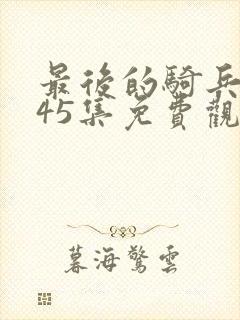 最後的騎兵
45集免費觀
暮海驚雲